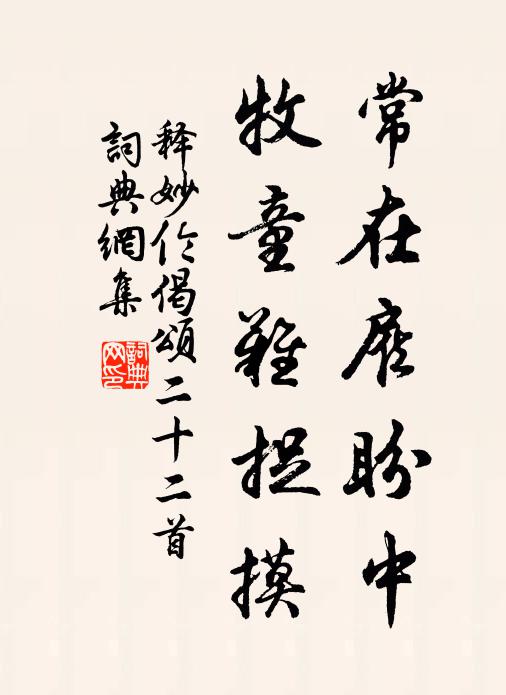 常在顧盼中
牧童難捉摸
释妙伦偈頌二十二首
詞典網集
詞典網印